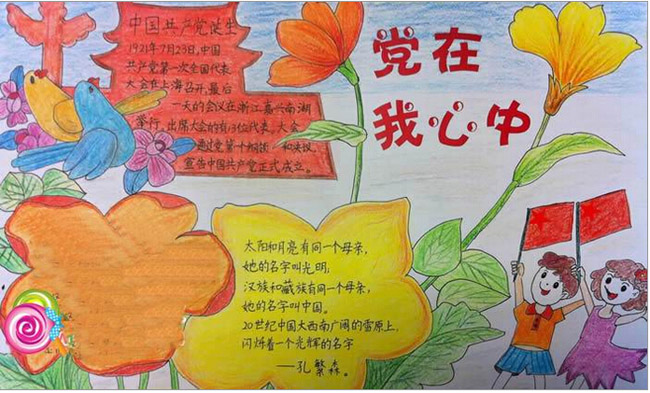 党在
我心中
中国共产党诞生
1921年7月23日,中国
共产党第一次全国代表
大会在上海召开,最后
一天的会议在浙江嘉兴南湖
举行,出席大会的有13位代表,大会
通过党第一个纲领 和决议,
宣告中国共产党正式成立。
太阳和月亮有同一个母亲,
她的名字叫光明,
汉族和藏族有同一个母亲,
她的名字叫中国。
20世纪中国大西南广阔的雪原上,
闪烁着一个光辉的名字
——孔繁森。